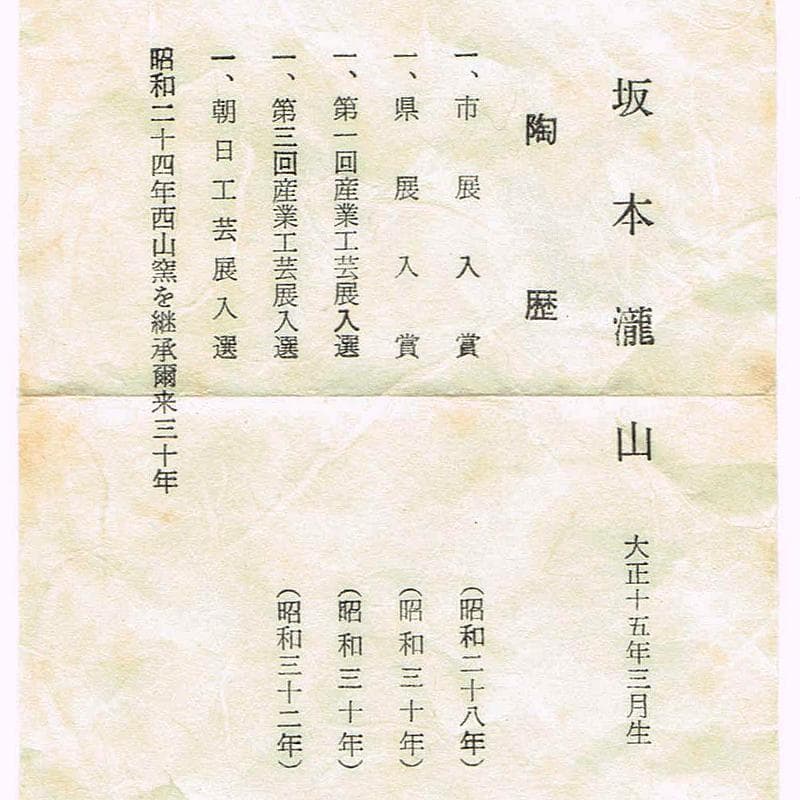 坂本瀧山 大正十五年三月生
陶歴
一、市展入賞 (昭和二十八年)
一、県展入賞 (昭和三十年)
一、第一回産業工芸展入選 (昭和三十年)
一、第三回産業工芸展入選 (昭和三十二年)
一、朝日工芸展入選
昭和二十四年西山窯を継承爾来三十年